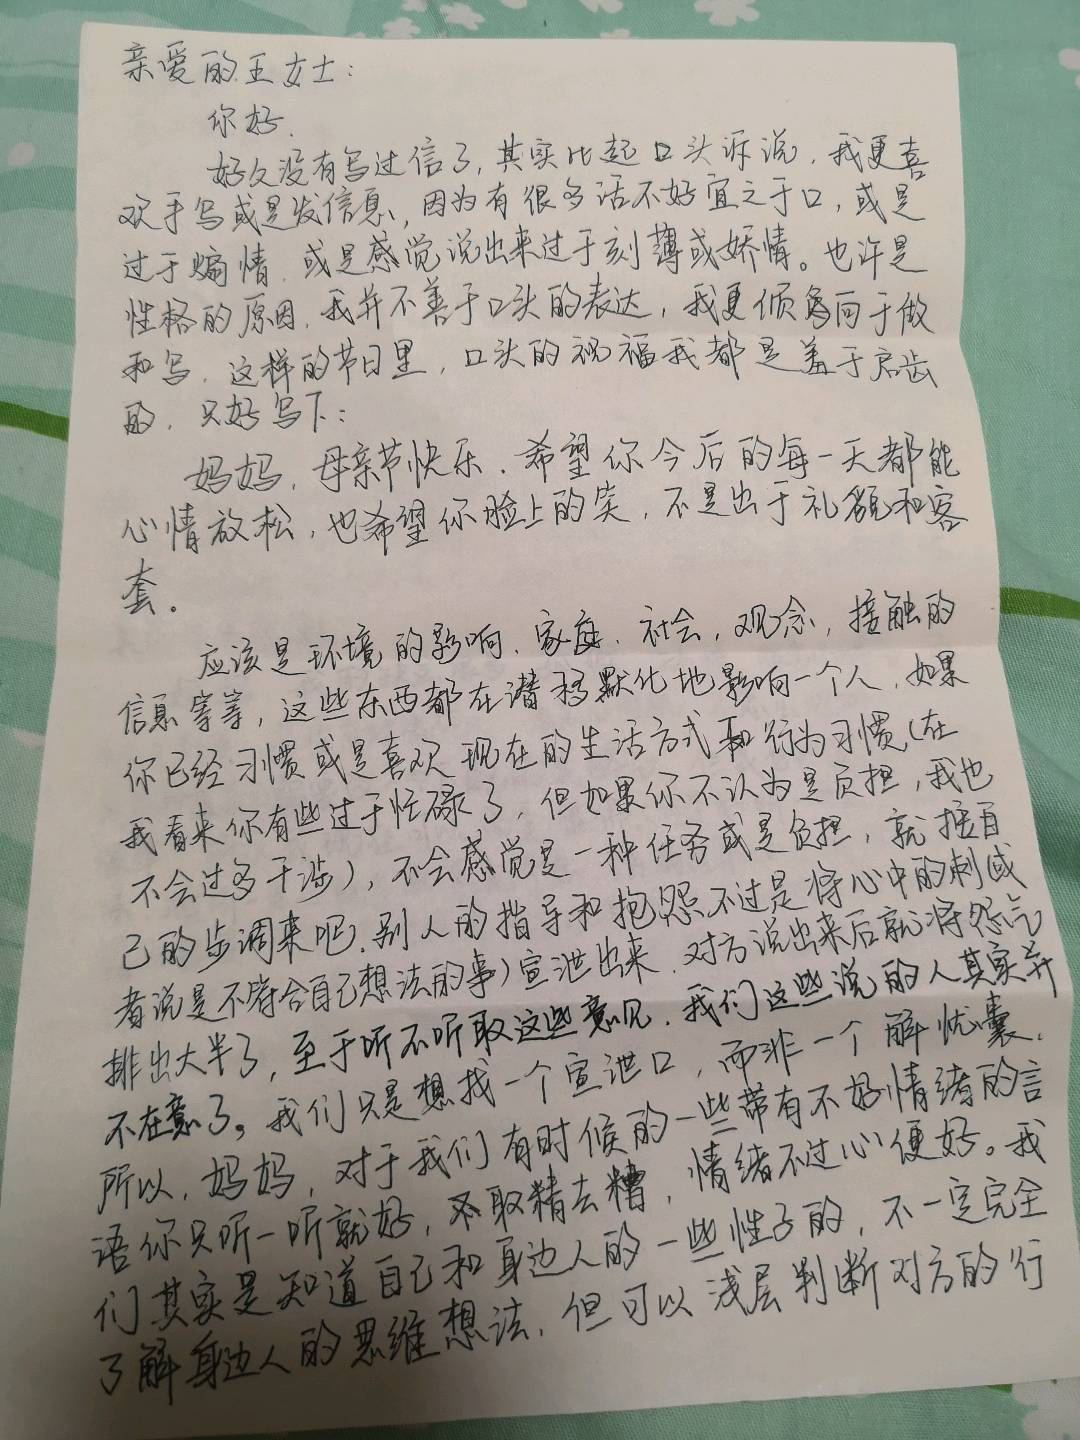 亲爱的王女士：
你好.
好久没有写过信了，其实比起口头诉说，我更喜
欢手写或是发信息，因为有很多话不好宣之于口，或是
过于煽情，或是感觉说出来过于刻薄或娇情。也许是
性格的原因，我并不善于口头的表达，我更倾向于做
和写，这样的节日里，口头的祝福我都是羞于启齿
的，只好写下：
妈妈，母亲节快乐．希望你今后的每一天都能
心情放松，也希望你脸上的笑，不是出于礼貌和客
套。
应该是环境的影响，家庭，社会，观念，接触的
信息等等，这些东西都在潜移默化地影响一个人，如果
你已经习惯或是喜欢现在的生活方式和行为习惯（在
我看来你有些过于忙碌了，但如果你不认为是负担，我也
不会过多干涉），不会感觉是一种任务或是负担，就按自
己的步调来吧，别人的指导和抱怨不过是将心中的刺（或
者说是不符合自己想法的事）宣泄出来，对方说出来后就将怨气
排出大半了，至于听不听取这些意见，我们这些说的人其实并
不在意了。我们只是想找一个宣泄口，而非一个解忧囊．
所以，妈妈，对于我们有时候的一些带有不好情绪的言
语你只听一听就好，取精去糟，情绪不过心便好。我
们其实是知道自己和身边人的一些性子的，不一定完全
了解身边人的思维想法，但可以浅层判断对方的行